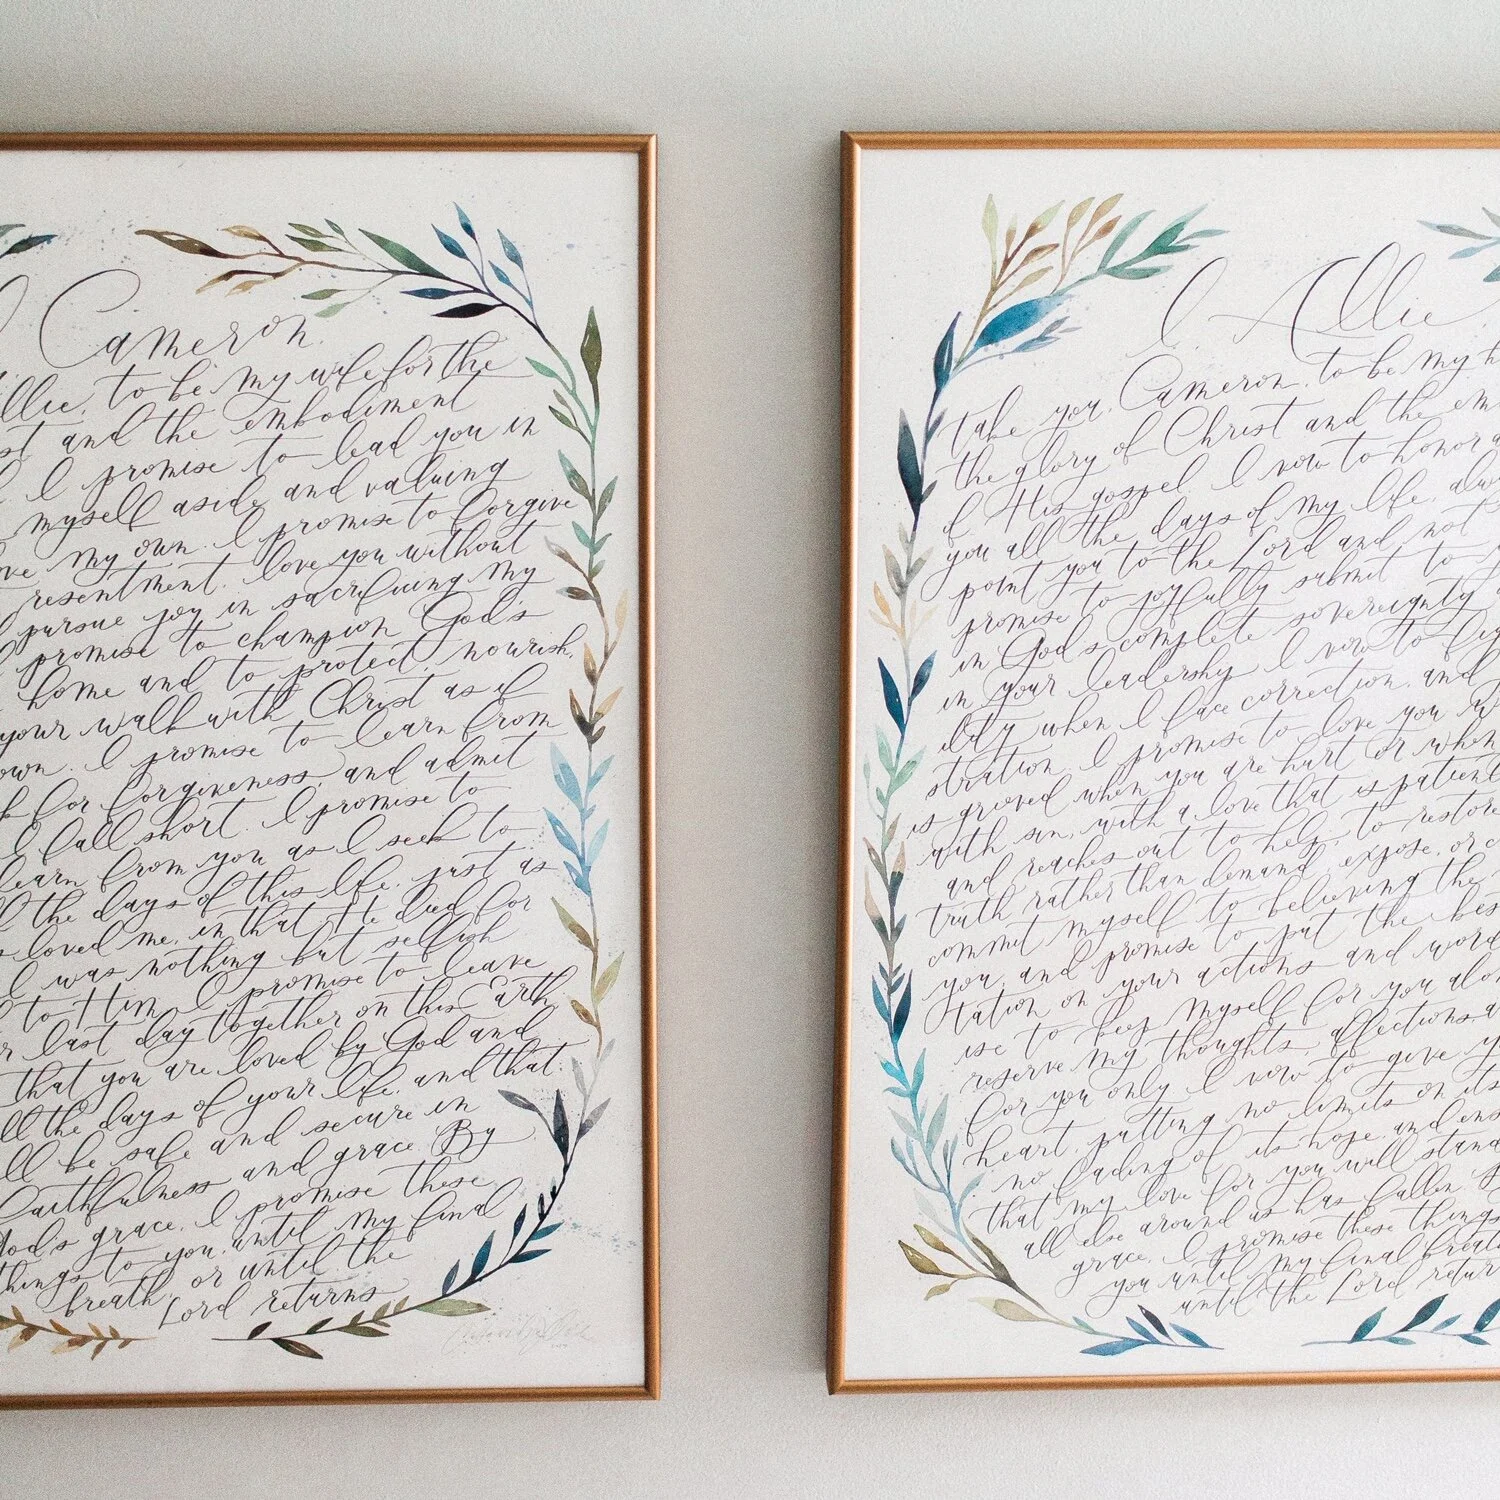 I Cameron
llie, to be my wife for the
st and the embodiment
I promise to lead you in
myself aside and valuing
ve my own. I promise to forgive
resentment, love you without
pursue joy in sacrificing my
I promise to champion God's
home and to protect, nourish,
your walk with Christ as if
own. I promise to learn from
k for forgiveness, and admit
I fall short. I promise to
learn from you as I seek to
l the days of this life, just as
s loved me, in that He died for
I was nothing but selfish
d to Him. I promise to leave
r last day together on this Earth
that you are loved by God and
ll the days of your life, and that
ll be safe and secure in
faithfulness and grace. By
God's grace, I promise these
things to you, until my final
breath, or until the
Lord returns
I Allie
take you, Cameron, to be my h
the glory of Christ and the em
of His gospel. I vow to honor a
you all the days of my life, alw
point you to the Lord and not
promise to joyfully submit to
in God's complete sovereignty
in your leadership. I vow to
ility when I face correction, and
stration. I promise to love you w
is grieved when you are hurt or when
with sin, with a love that is patient
and reaches out to help, to restore
truth rather than demand, expose, or c
commit myself to believing the
you, and promise to put the bes
tation on your actions and word
ise to keep myself for you alon
reserve my thoughts, affections, a
for you only. I vow to give y
heart, putting no limits on its
no fading of its hope, and ens
that my love for you will stand
all else around us has fallen.
grace, I promise these things
you until my final breat
until the Lord retur